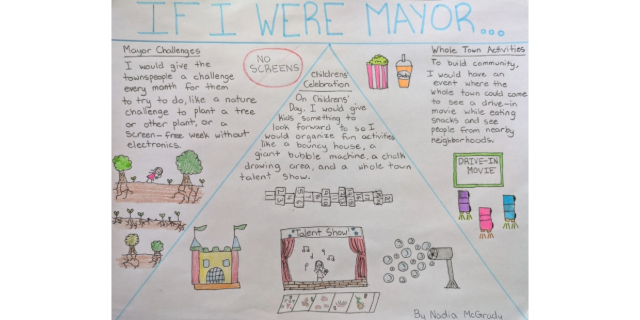 IF I WERE MAYOR...
Mayor Challenges
I would give the
townspeople a challenge
every month for them
to try to do, like a nature
challenge to plant a tree
or other plant, or a
screen-free week without
electronics.
NO
SCREENS
Childrens'
Celebration
On Childrens'
Day, I would give
kids something to
look forward to so I
would organize fun activites
like a bouncy house, a
giant bubble machine, a chalk
drawing area, and a whole town
talent show.
Whole Town Activities
To build community,
I would have an
event where the
whole town could come
to see a drive-in
movie while eating
snacks and see
people from nearby
neighborhoods.
DRIVE-IN
MOVIE
Talent Show!
By Nadia McGrady